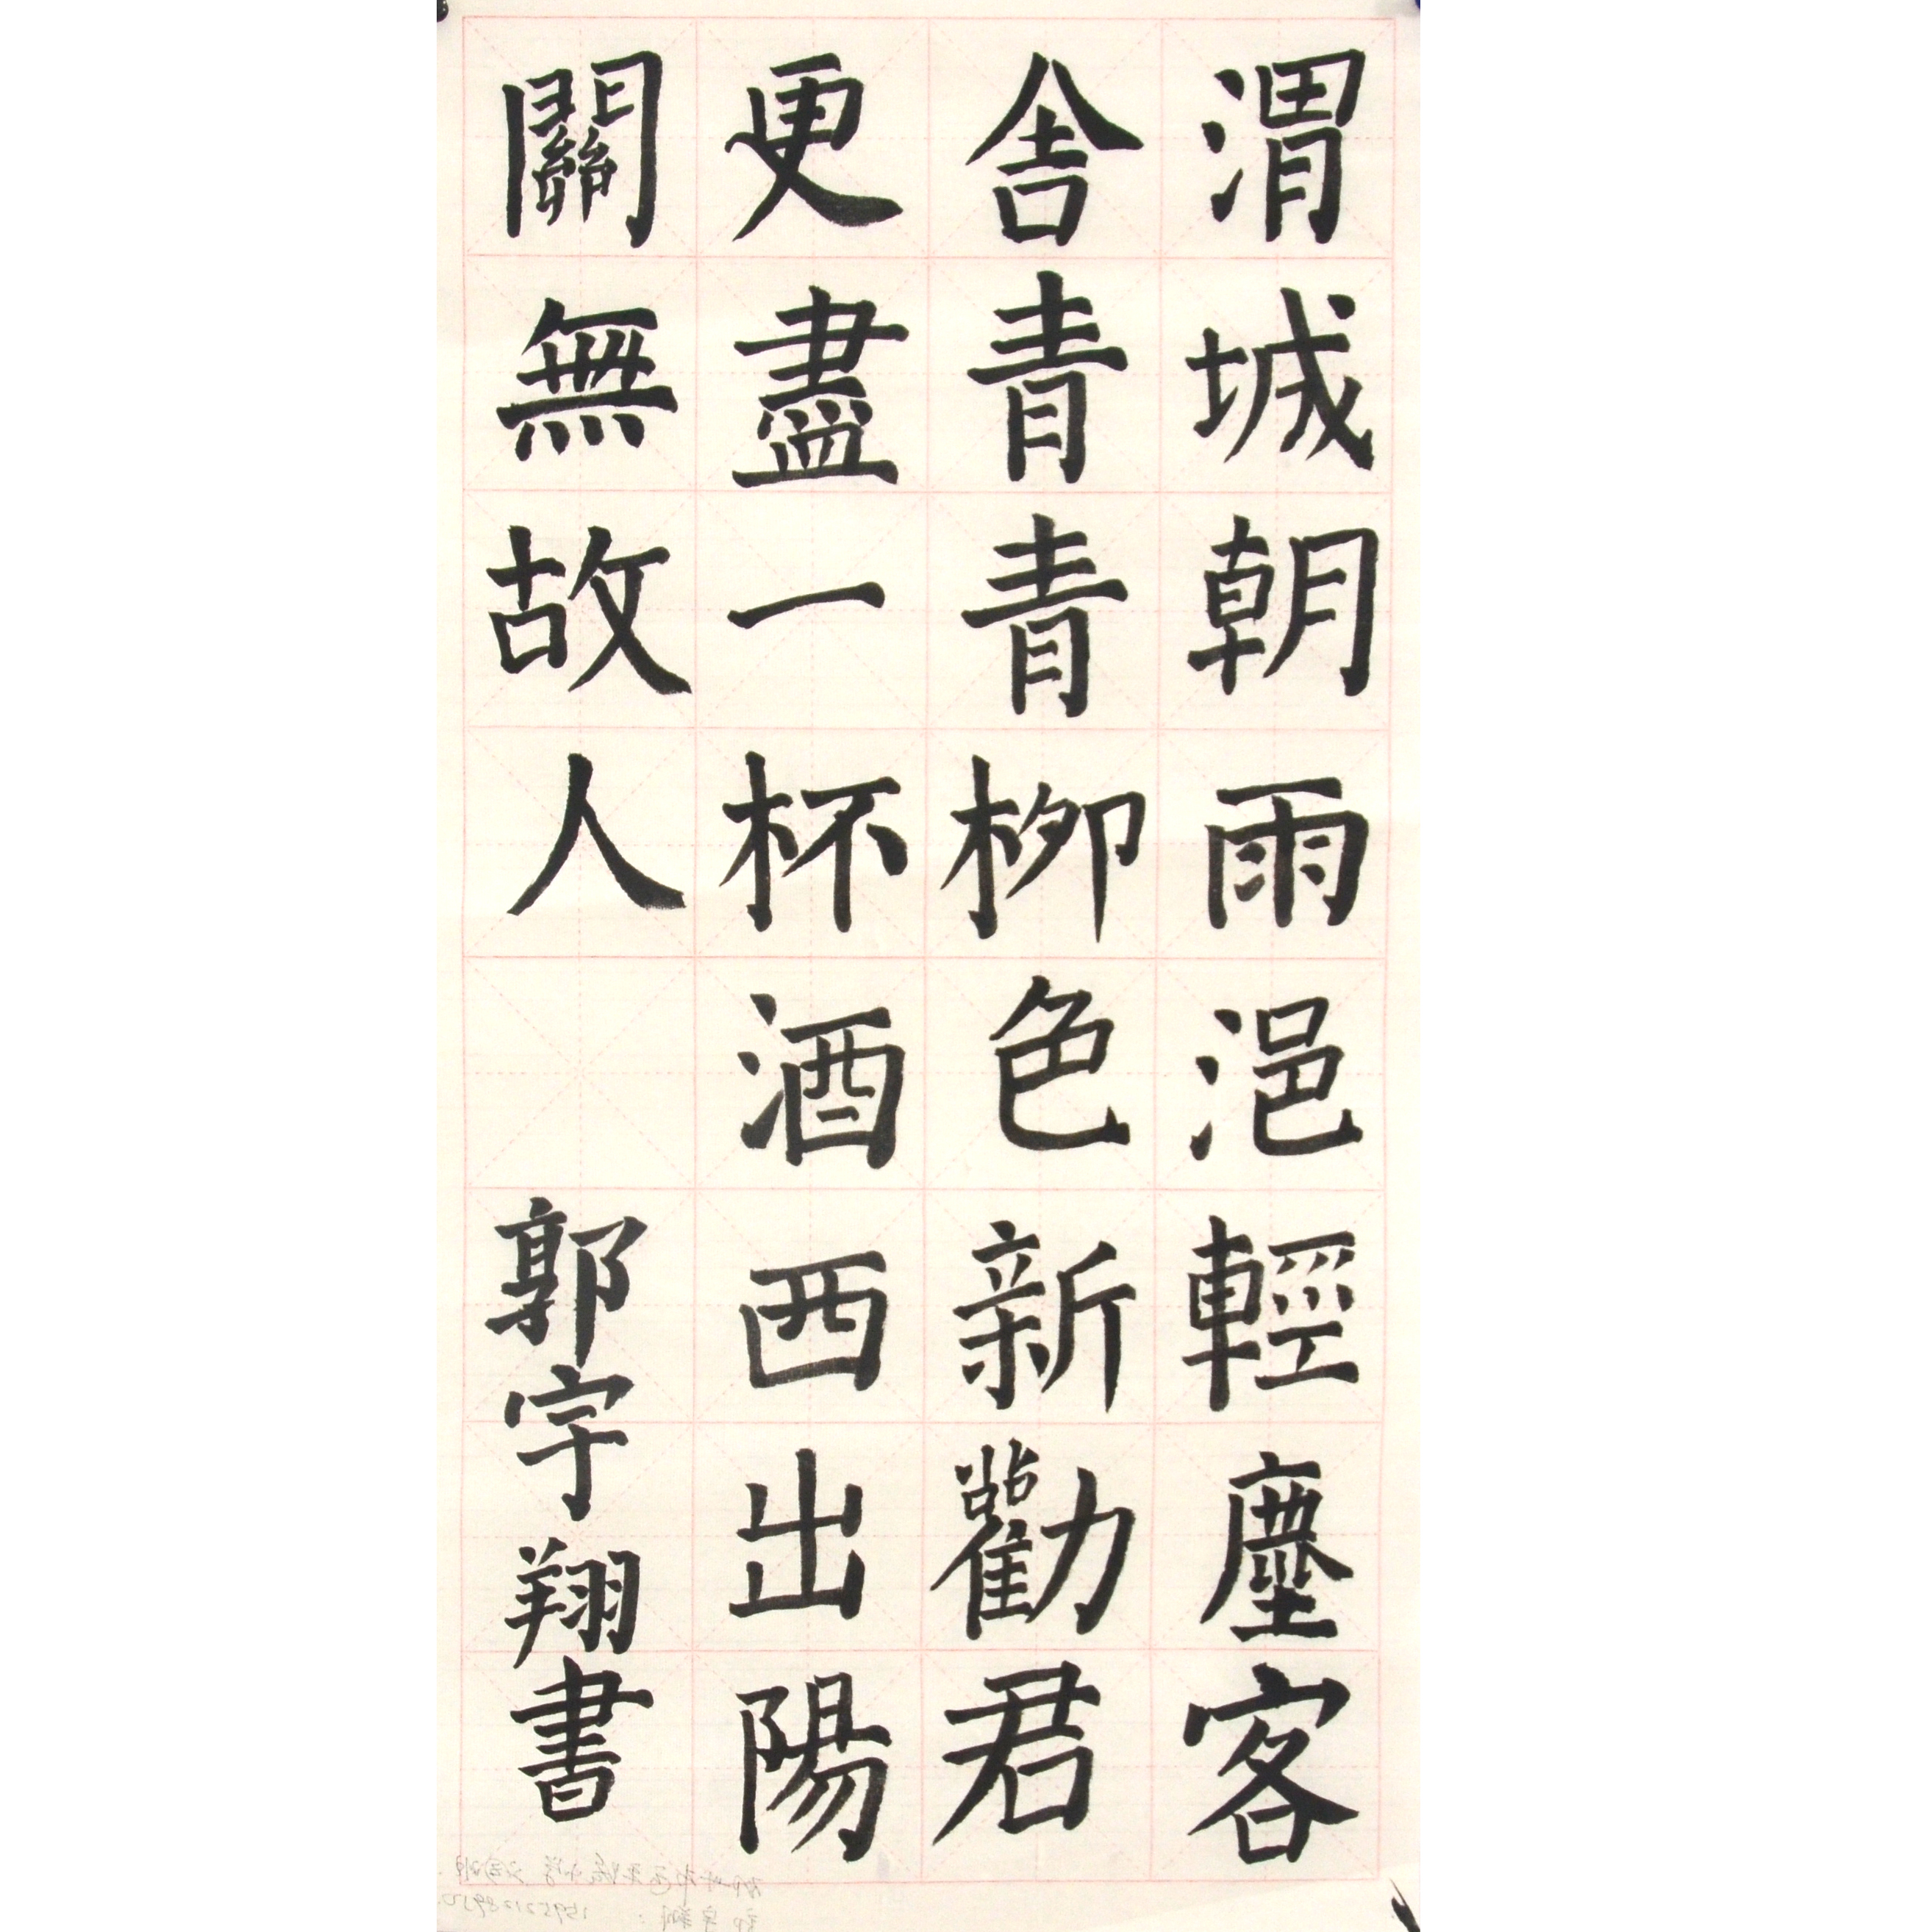 渭城朝雨浥輕塵客
舍青青柳色新勸君
更盡一杯酒西出陽
關無故人
郭宇翔書